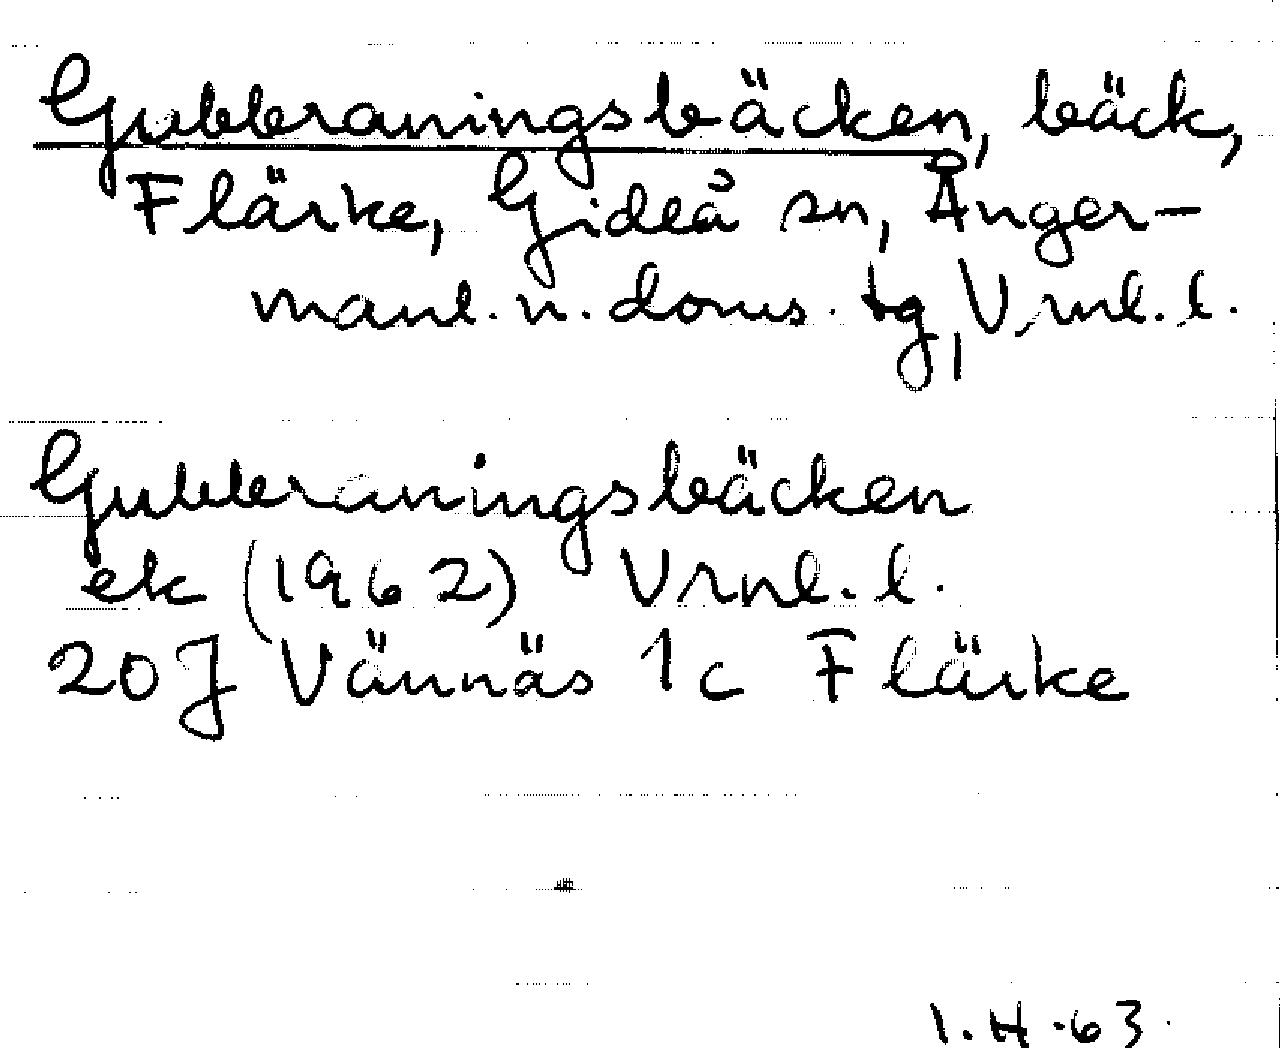 Gubberaningsbäcken, bäck,
Flärke, Gideå sn, Ånger-
manl. n. doms. tg, Vrnl. l.
Gubberaningsbäcken
ek (1962) Vrnl. l.
20J Vännäs 1c Flärke
I.H.63.